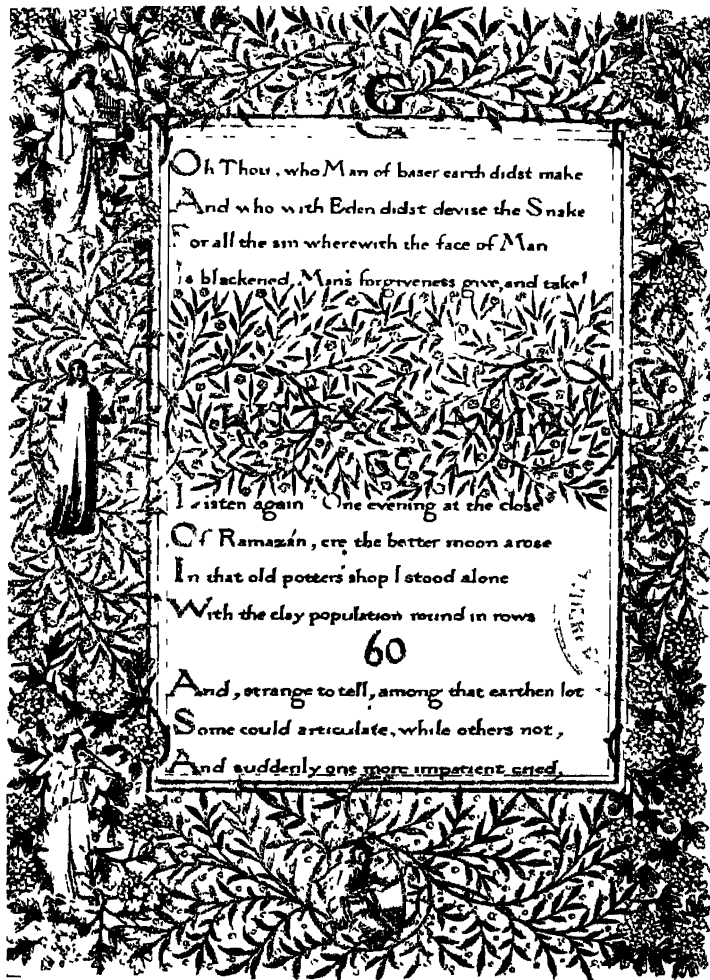 Oh Thou, who Man of baser earth didst make
And who with Eden didst devise the Snake
For all the sin wherewith the face of Man
Is blackened, Man's forgiveness give, and take!
KUZA NAMA
Listen again One evening at the close
Of Ramazán, ere the better moon arose
In that old potter's shop I stood alone
With the clay population round in rows
60
And, strange to tell, among that earthen lot
Some could articulate, while others not,
And suddenly one more impatient cried,